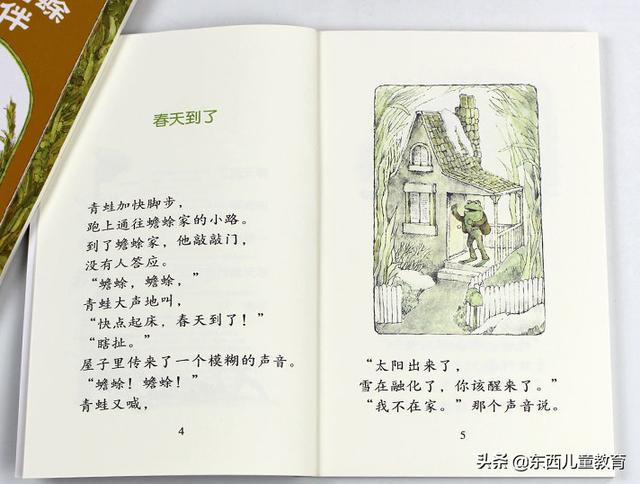 蜍
伴
春天到了
青蛙加快脚步，
跑上通往蟾蜍家的小路。
到了蟾蜍家，他敲敲门，
没有人答应。
“蟾蜍，蟾蜍，”
青蛙大声地叫，
“快点起床，春天到了！”
“瞎扯。”
屋子里传来了一个模糊的声音。
“蟾蜍！蟾蜍！”
青蛙又喊，
4
“太阳出来了，
雪在融化了，你该醒来了。”
“我不在家。”那个声音说。
5
头条 @东西儿童教育